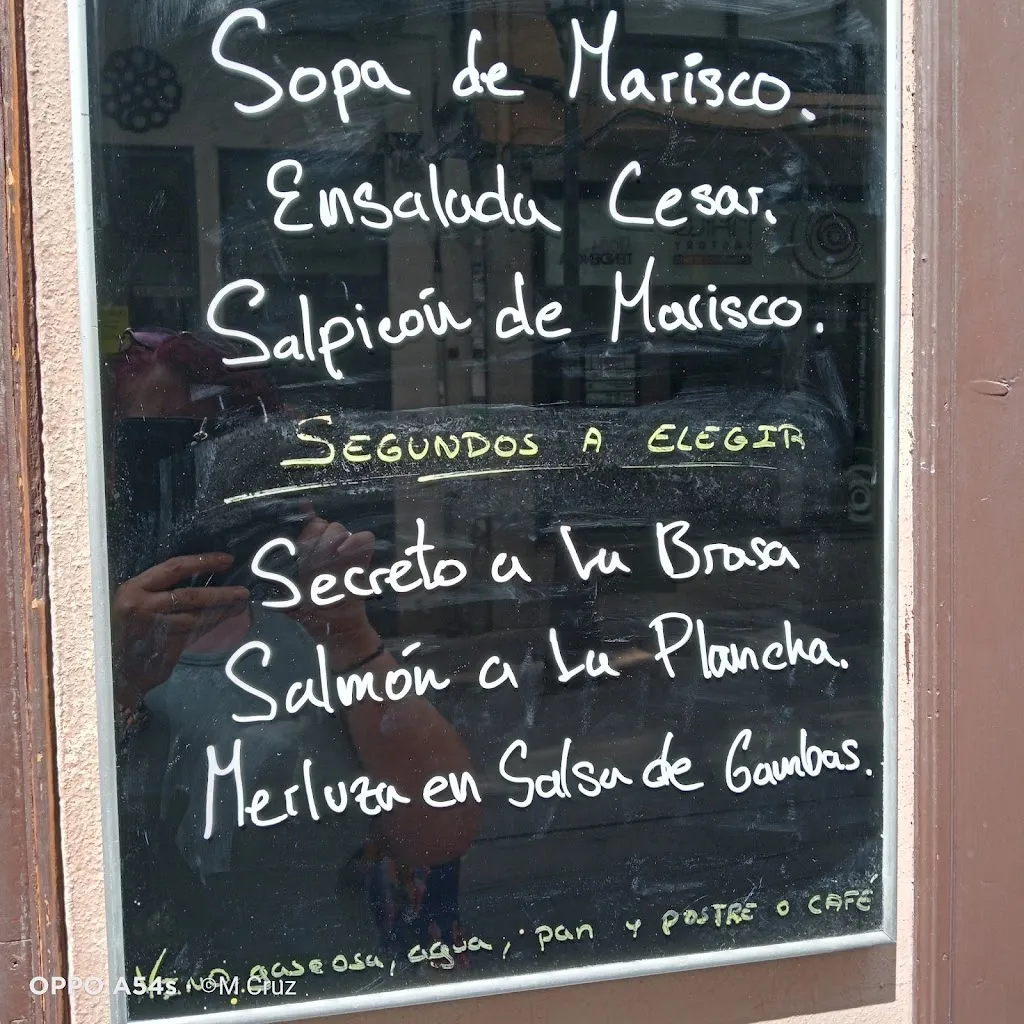 Sopa de Marisco.
Ensalada Cesar.
Salpicón de Marisco.
SEGUNDOS A ELEGIR
Secreto a La Brasa
Salmón a La Plancha.
Merluza en Salsa de Gambas.
VINO, gaseosa, agua, pan y POSTRE O CAFÉ
OPPO A54s ©M.Cruz